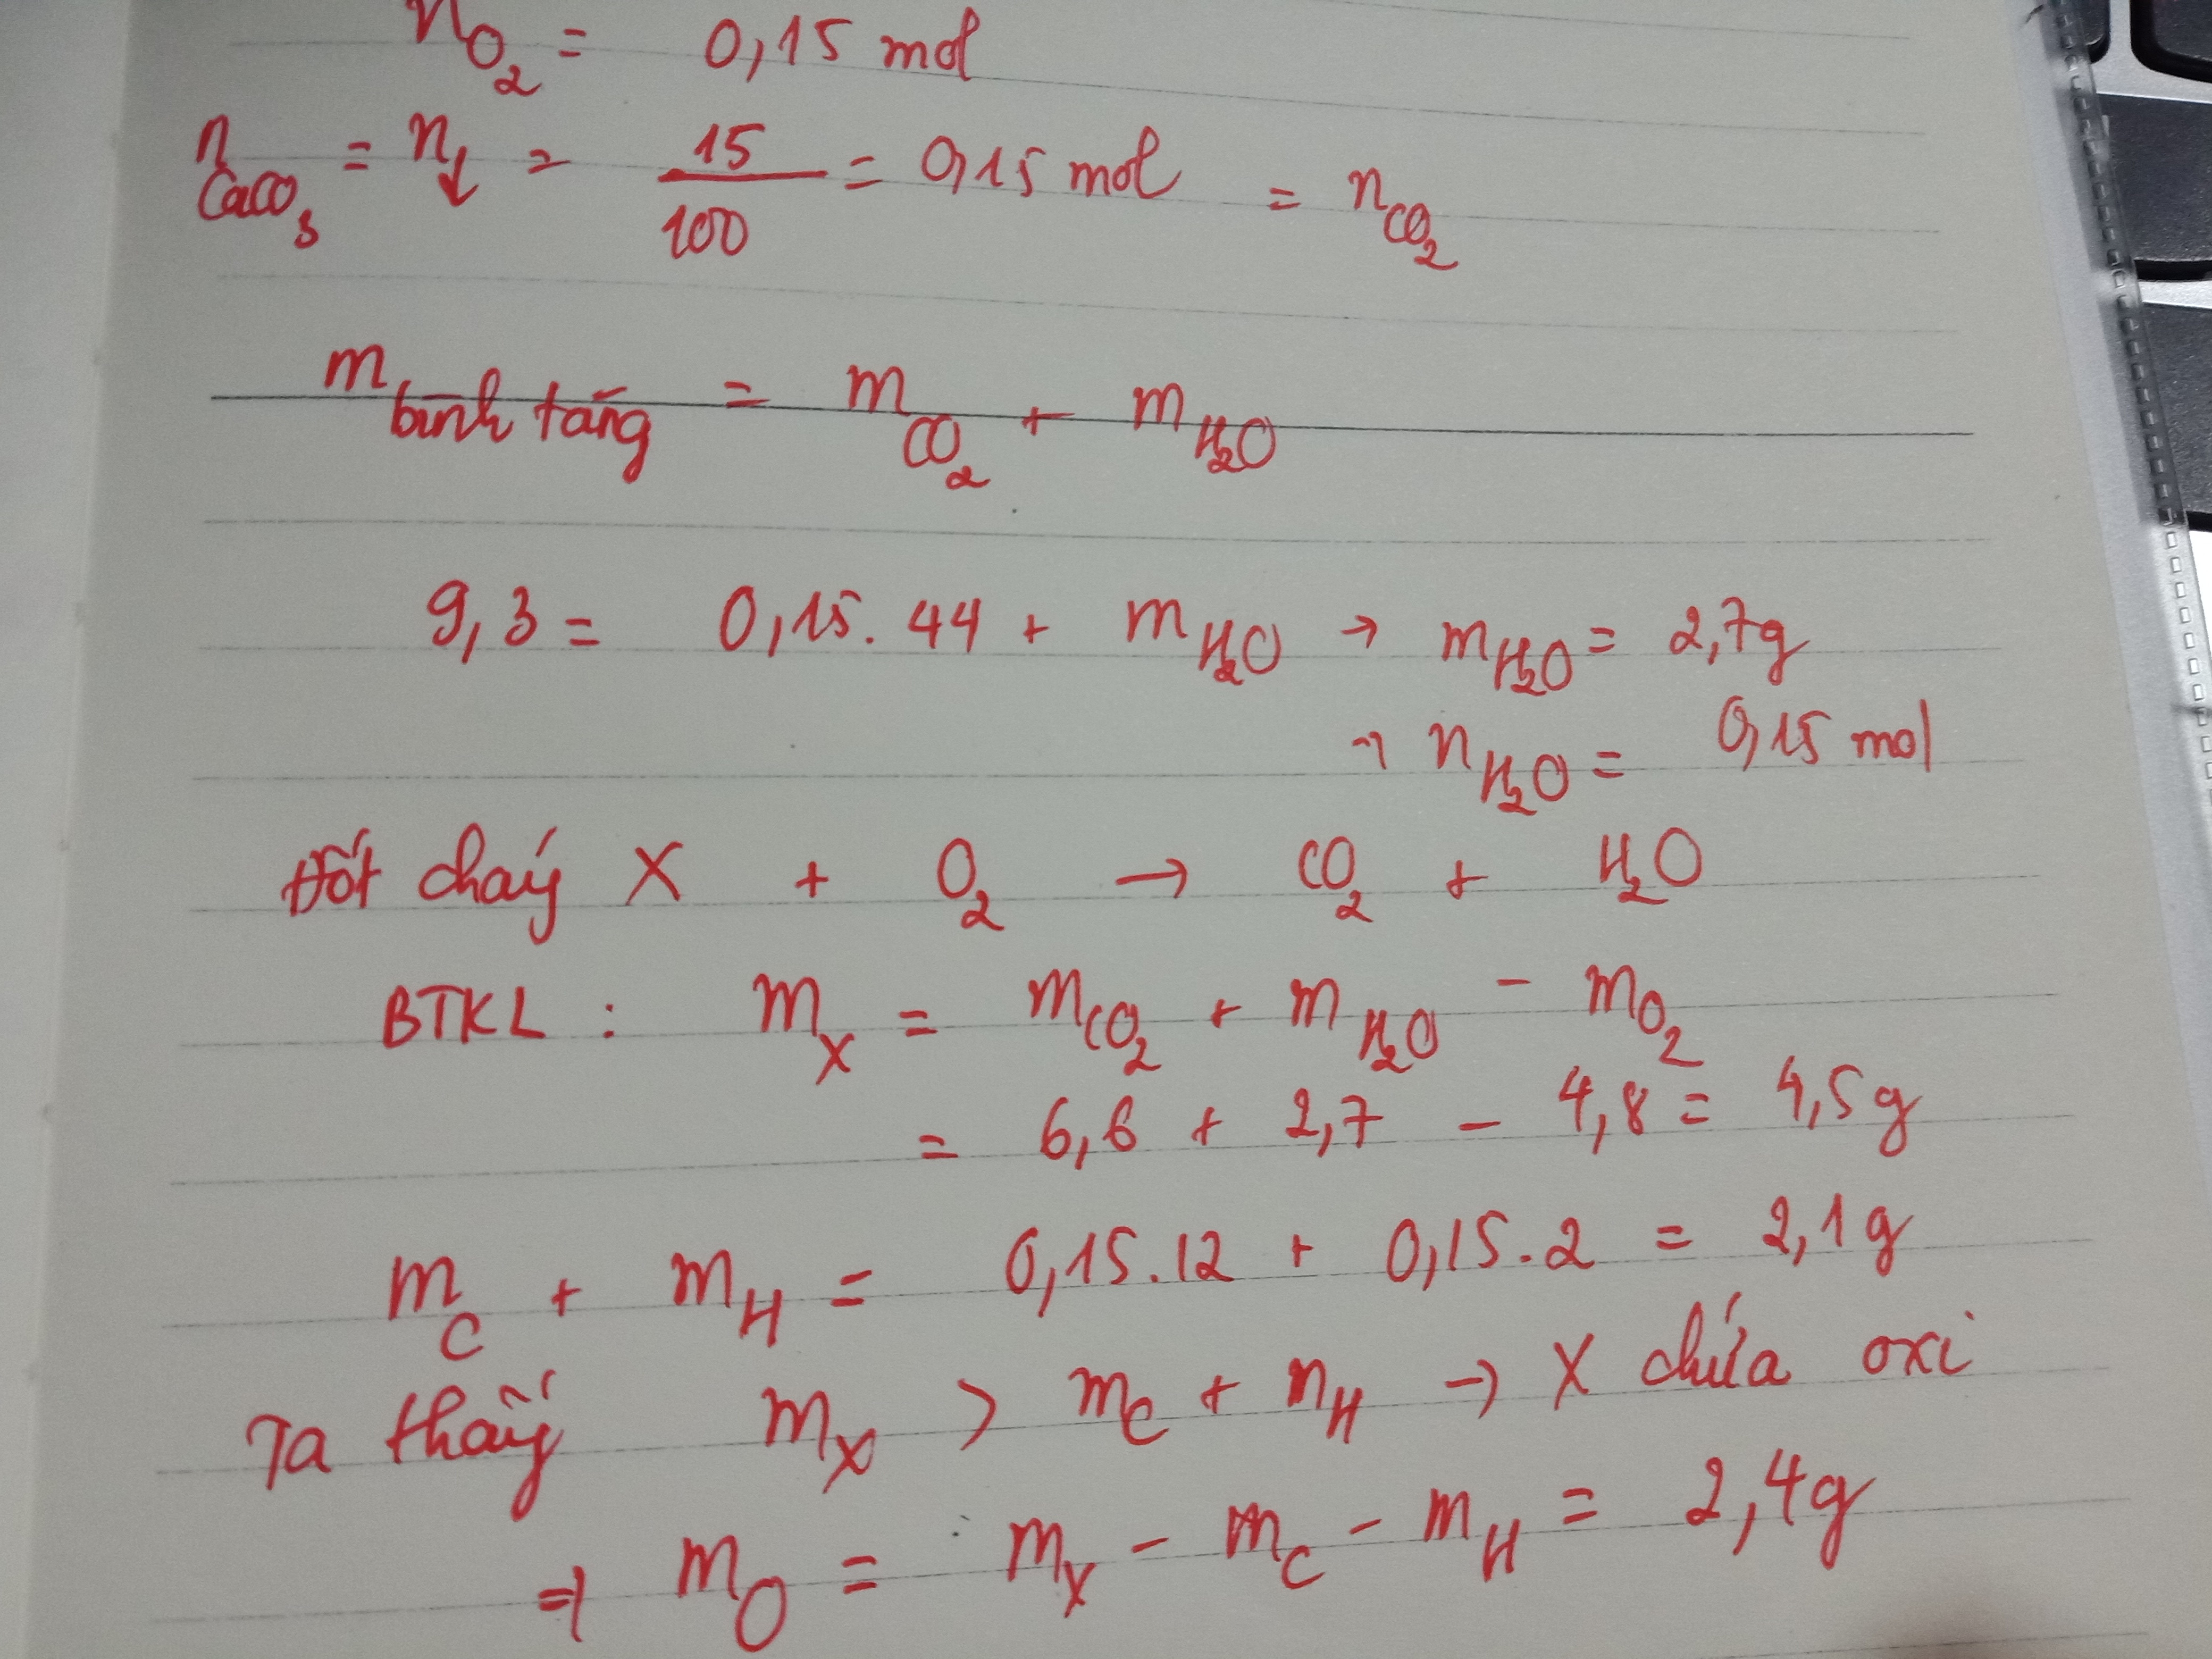 nO₂ = 0,15 mol
nCaCO₃ = n↓ = 15/100 = 0,15 mol = nCO₂
m bình tăng = mCO₂ + mH₂O
9,3 = 0,15.44 + mH₂O → mH₂O = 2,7g
→ nH₂O = 0,15 mol
Đốt cháy X + O₂ → CO₂ + H₂O
BTKL : mX = mCO₂ + mH₂O - mO₂
= 6,6 + 2,7 - 4,8 = 4,5g
mC + mH = 0,15.12 + 0,15.2 = 2,1g
Ta thấy mX > mC + nH → X chứa oxi
⇒ mO = mX - mC - mH = 2,4g